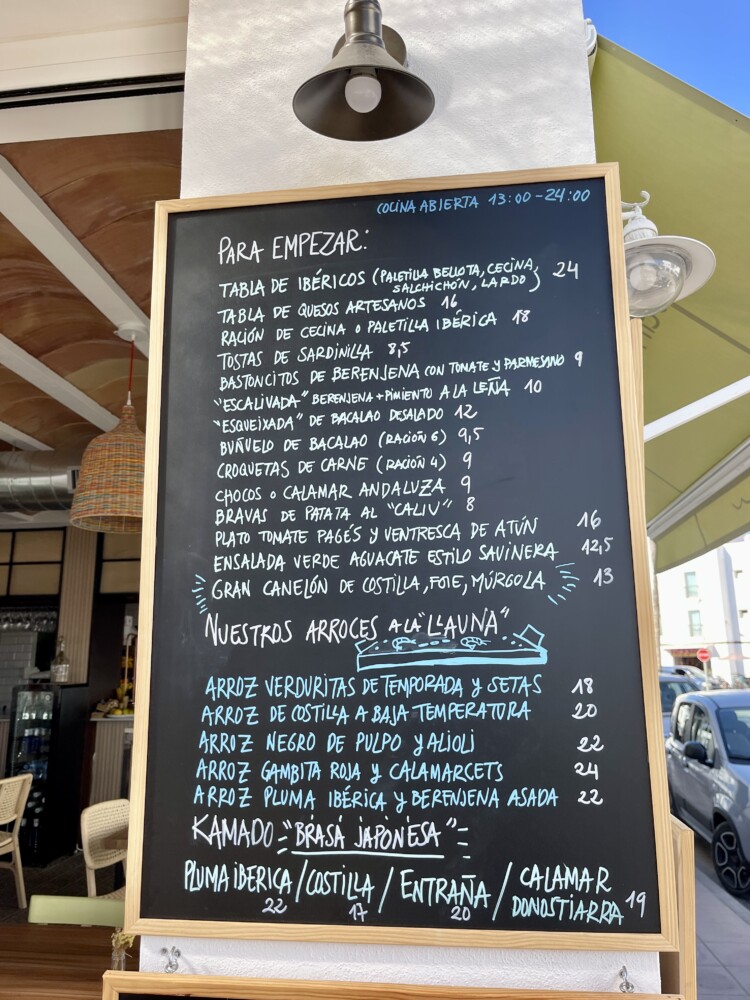 COCINA ABIERTA 13:00-24:00
PARA EMPEZAR:
TABLA DE IBÉRICOS (PALETILLA BELLOTA, CECINA, SALCHICHÓN, LARDO) 24
TABLA DE QUESOS ARTESANOS 16
RACIÓN DE CECINA O PALETILLA IBÉRICA 18
TOSTAS DE SARDINILLA 8,5
BASTONCITOS DE BERENJENA CON TOMATE Y PARMESANO 9
"ESCALIVADA" BERENJENA + PIMIENTO A LA LEÑA 10
"ESQUEIXADA" DE BACALAO DESALADO 12
BUÑUELO DE BACALAO (RACIÓN 6) 9,5
CROQUETAS DE CARNE (RACIÓN 4) 9
CHOCOS O CALAMAR ANDALUZA 9
BRAVAS DE PATATA AL "CALIU" 8
PLATO TOMATE PAGÉS Y VENTRESCA DE ATÚN 16
ENSALADA VERDE AGUACATE ESTILO SAVINERA 12,5
GRAN CANELÓN DE COSTILLA, FOIE, MÚRGOLA 13
NUESTROS ARROCES A LA "LLAUNA"
ARROZ VERDURITAS DE TEMPORADA Y SETAS 18
ARROZ DE COSTILLA A BAJA TEMPERATURA 20
ARROZ NEGRO DE PULPO Y ALIOLI 22
ARROZ GAMBITA ROJA Y CALAMARCETS 24
ARROZ PLUMA IBÉRICA Y BERENJENA ASADA 22
KAMADO "BRASA JAPONESA"
PLUMA IBERICA 22 / COSTILLA 17 / ENTRAÑA 20 / CALAMAR DONOSTIARRA 19